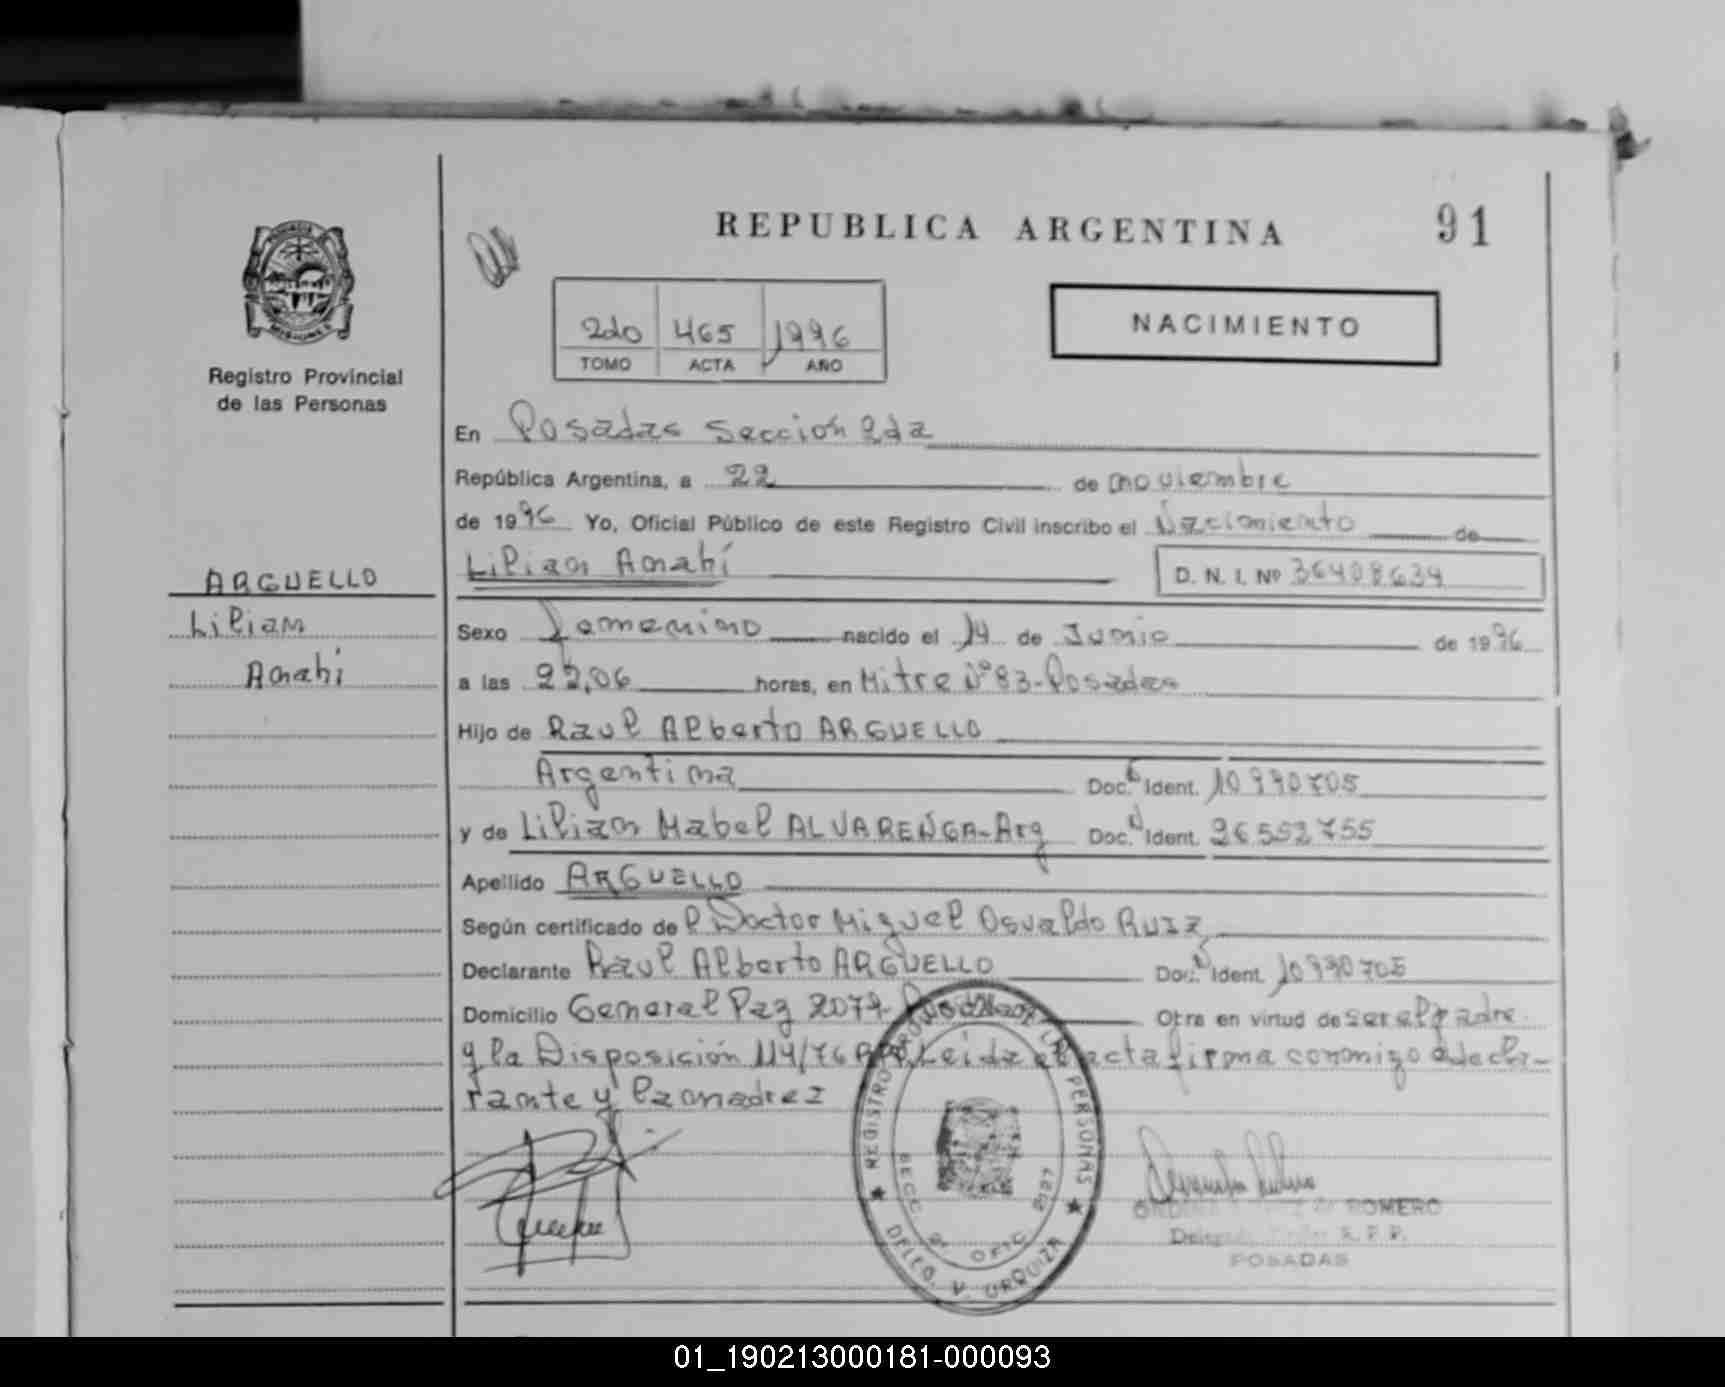 REPUBLICA ARGENTINA
91
2do 465 1996
TOMO ACTA AÑO
NACIMIENTO
Registro Provincial
de las Personas
En Posadas Sección 2da
República Argentina, a 22 de noviembre
de 1996 Yo, Oficial Público de este Registro Civil inscribo el Nacimiento de
Lilian Anahí
D. N. I. Nº 36408634
ARGUELLO
Lilian
Anahí
Sexo Femenino nacido el 14 de Junio de 1996
a las 22,06 horas, en Mitre Nº 83-Posadas
Hijo de Raul Alberto ARGUELLO
Argentina Doc. Ident. 10990705
y de Lilian Mabel ALVARENGA-Arg Doc. Ident. 26552755
Apellido ARGUELLO
Según certificado del Doctor Miguel Osvaldo RUIZ
Declarante Raul Alberto ARGUELLO Doc. Ident. 10990705
Domicilio General Paz 2079 Otra en virtud de ser el padre
y la Disposición 114/76 Leida el acta firma conmigo el decla-
rante y la madre
REGISTRO PERSONAS
SECC. 2ª OFIC. 2127
DELEG. V. URQUIZA
ROMERO
R. P. P.
POSADAS
01_190213000181-000093